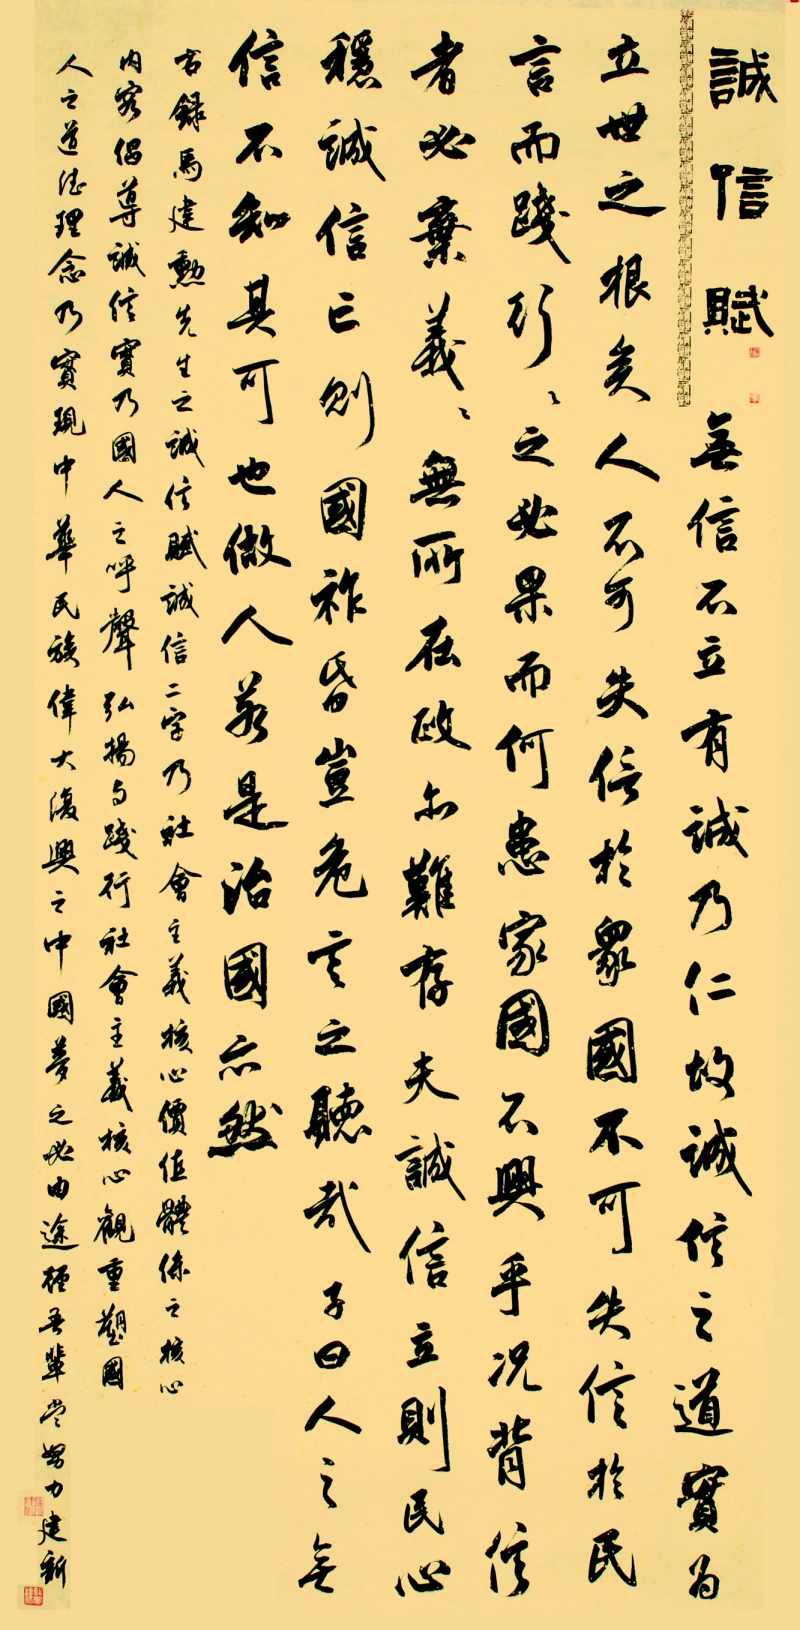 誠信賦
無信不立有誠乃仁故誠信之道實為
立世之根矣人不可失信於眾國不可失信於民
言而踐行々之必果而何患家國不興乎況背信
者必棄義々無所在政亦難存夫誠信立則民心
穩誠信亡則國祚昏豈危言之聽哉子曰人之無
信不知其可也做人若是治國亦然
右錄馬建勳先生之誠信賦誠信二字乃社會主義核心價值體係之核心
內容倡導誠信實乃國人之呼聲弘揚与踐行社會主義核心觀重塑國
人之道德理念乃實現中華民族偉大復興之中國夢之必由途徑吾輩當努力建新